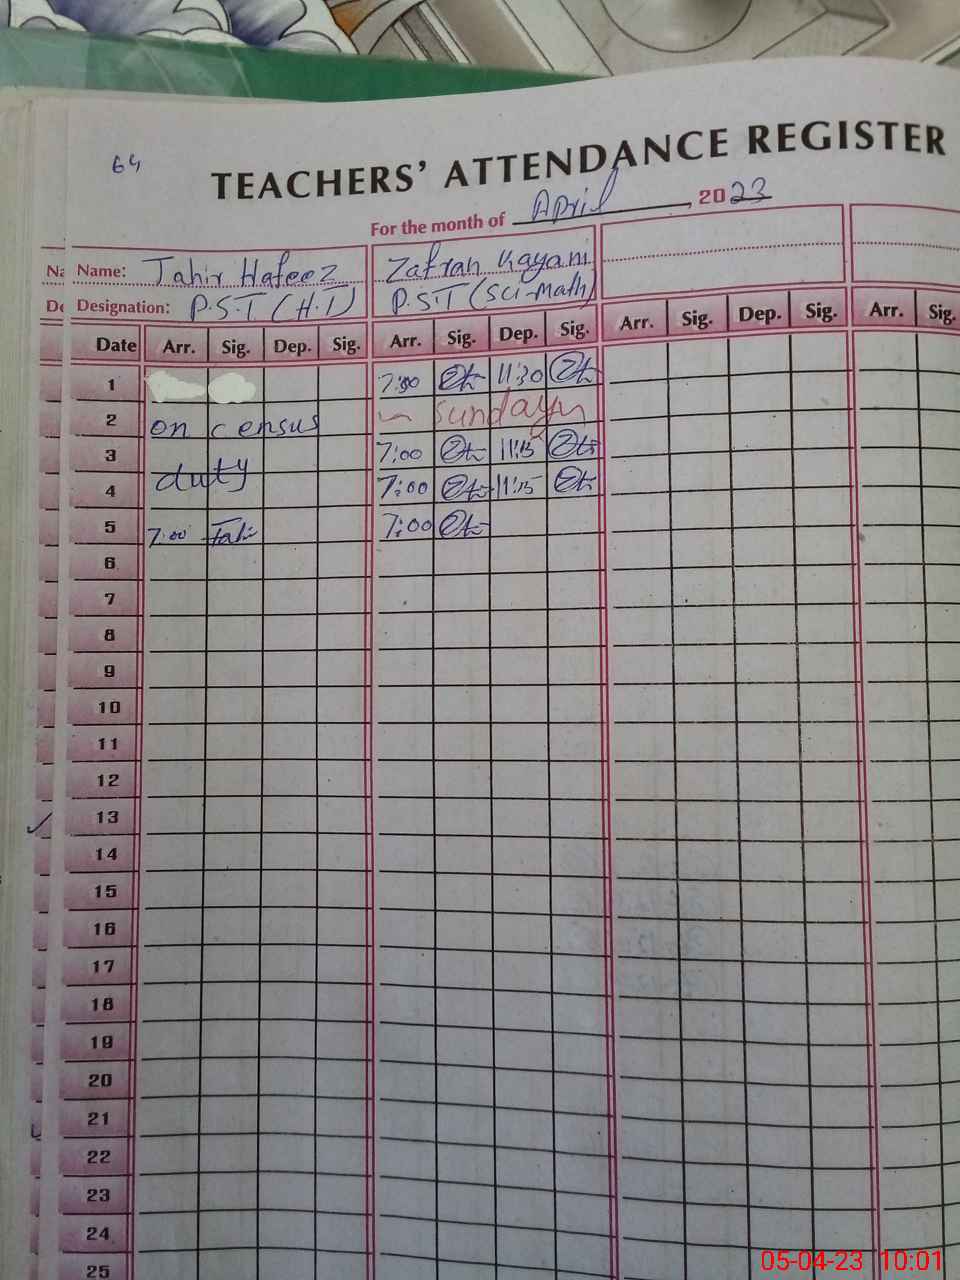 64
TEACHERS' ATTENDANCE REGISTER
For the month of April, 2023
Na Name: Tahir Hafeez Zafran Kayani
De Designation: P.S.T (H.T) P.S.T (Sci-Math)
Date Arr. Sig. Dep. Sig. Arr. Sig. Dep. Sig. Arr. Sig. Dep. Sig. Arr. Sig.
1 7:30 11:30
2 on census Sunday
3 7:00 11:15
4 duty 7:00 11:15
5 7:00 Tahir 7:00
6
7
8
9
10
11
12
13
14
15
16
17
18
19
20
21
22
23
24
25
05-04-23 10:01